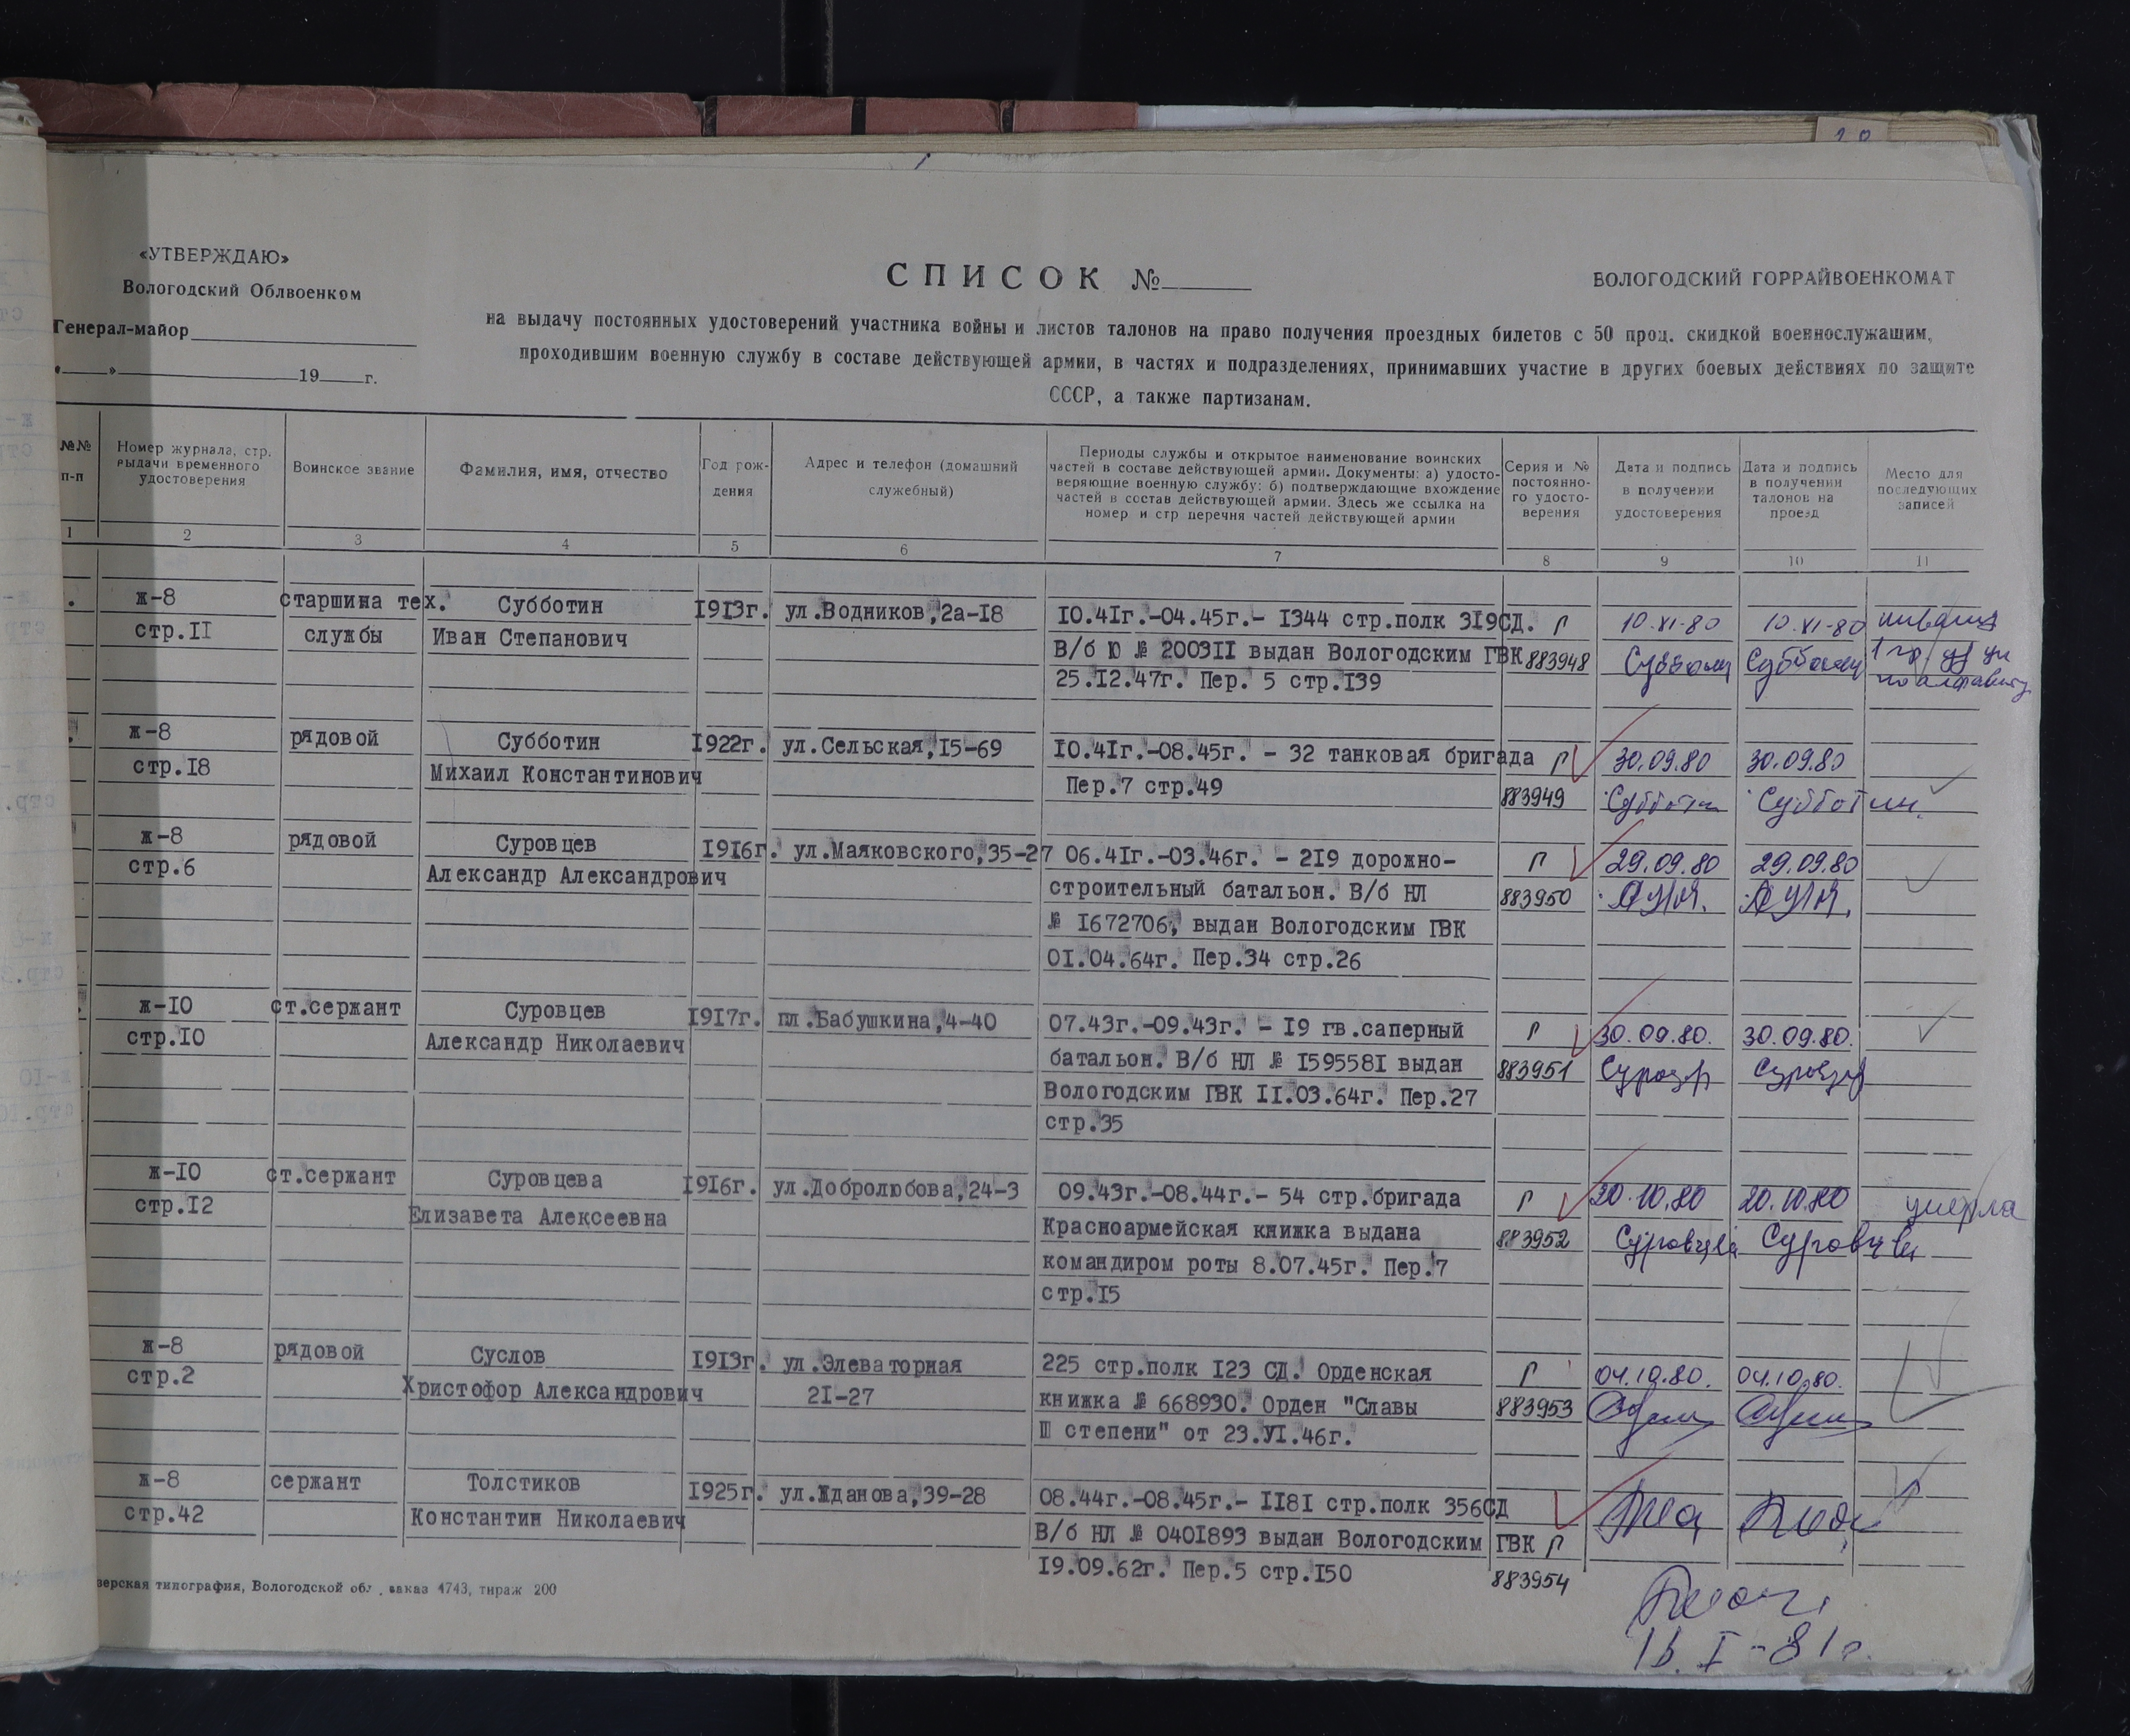 20
«УТВЕРЖДАЮ»
Вологодский Облвоенком
Генерал-майор
«___»___19___г.
СПИСОК №
ВОЛОГОДСКИЙ ГОРРАЙВОЕНКОМАТ
на выдачу постоянных удостоверений участника войны и листов талонов на право получения проездных билетов с 50 проц. скидкой военнослужащим,
проходившим военную службу в составе действующей армии, в частях и подразделениях, принимавших участие в других боевых действиях по защите
СССР, а также партизанам.
№№ п-п
Номер журнала, стр. выдачи временного удостоверения
Воинское звание
Фамилия, имя, отчество
Год рож-дения
Адрес и телефон (домашний служебный)
Периоды службы и открытое наименование воинских
частей в составе действующей армии. Документы: а) удосто-
веряющие военную службу; б) подтверждающие вхождение
частей в состав действующей армии. Здесь же ссылка на
номер и стр перечня частей действующей армии
Серия и № постоянно-го удосто-верения
Дата и подпись в получении удостоверения
Дата и подпись в получении талонов на проезд
Место для последующих записей
1 2 3 4 5 6 7 8 9 10 11
ж-8 старшина тех. Субботин 1913г. ул.Водников,2а-18 10.41г.-04.45г.- 1344 стр.полк 319СД. П 10.XI-80 10.XI-80 инвалид
стр.11 службы Иван Степанович В/б Ю № 200311 выдан Вологодским ГВК 883948 1 гр
25.12.47г. Пер. 5 стр.139 по алфавиту
ж-8 рядовой Субботин 1922г. ул.Сельская,15-69 10.41г.-08.45г. - 32 танковая бригада П 30.09.80 30.09.80
стр.18 Михаил Константинович Пер.7 стр.49 883949 Субботин Субботин
ж-8 рядовой Суровцев 1916г. ул.Маяковского,35-27 06.41г.-03.46г. - 219 дорожно- П 29.09.80 29.09.80
стр.6 Александр Александрович строительный батальон. В/б НЛ 883950
№ 1672706, выдан Вологодским ГВК
01.04.64г. Пер.34 стр.26
ж-10 ст.сержант Суровцев 1917г. пл.Бабушкина,4-40 07.43г.-09.43г. - 19 гв.саперный П 30.09.80. 30.09.80.
стр.10 Александр Николаевич батальон. В/б НЛ № 1595581 выдан 883951
Вологодским ГВК 11.03.64г. Пер.27
стр.35
ж-10 ст.сержант Суровцева 1916г. ул.Добролюбова,24-3 09.43г.-08.44г.- 54 стр.бригада П 20.10.80 20.10.80 умерла
стр.12 Елизавета Алексеевна Красноармейская книжка выдана 883952 Суровцева Суровцева
командиром роты 8.07.45г. Пер.7
стр.15
ж-8 рядовой Суслов 1913г. ул.Элеваторная 225 стр.полк 123 СД. Орденская П 04.10.80. 04.10.80.
стр.2 Христофор Александрович 21-27 книжка № 668930. Орден "Славы 883953
Ш степени" от 23.УІ.46г.
ж-8 сержант Толстиков 1925г. ул.Жданова,39-28 08.44г.-08.45г.- 1181 стр.полк 356СД
стр.42 Константин Николаевич В/б НЛ № 0401893 выдан Вологодским ГВК П
19.09.62г. Пер.5 стр.150 883954
зерская типография, Вологодской обл., заказ 4743, тираж 200
16.I-81г.